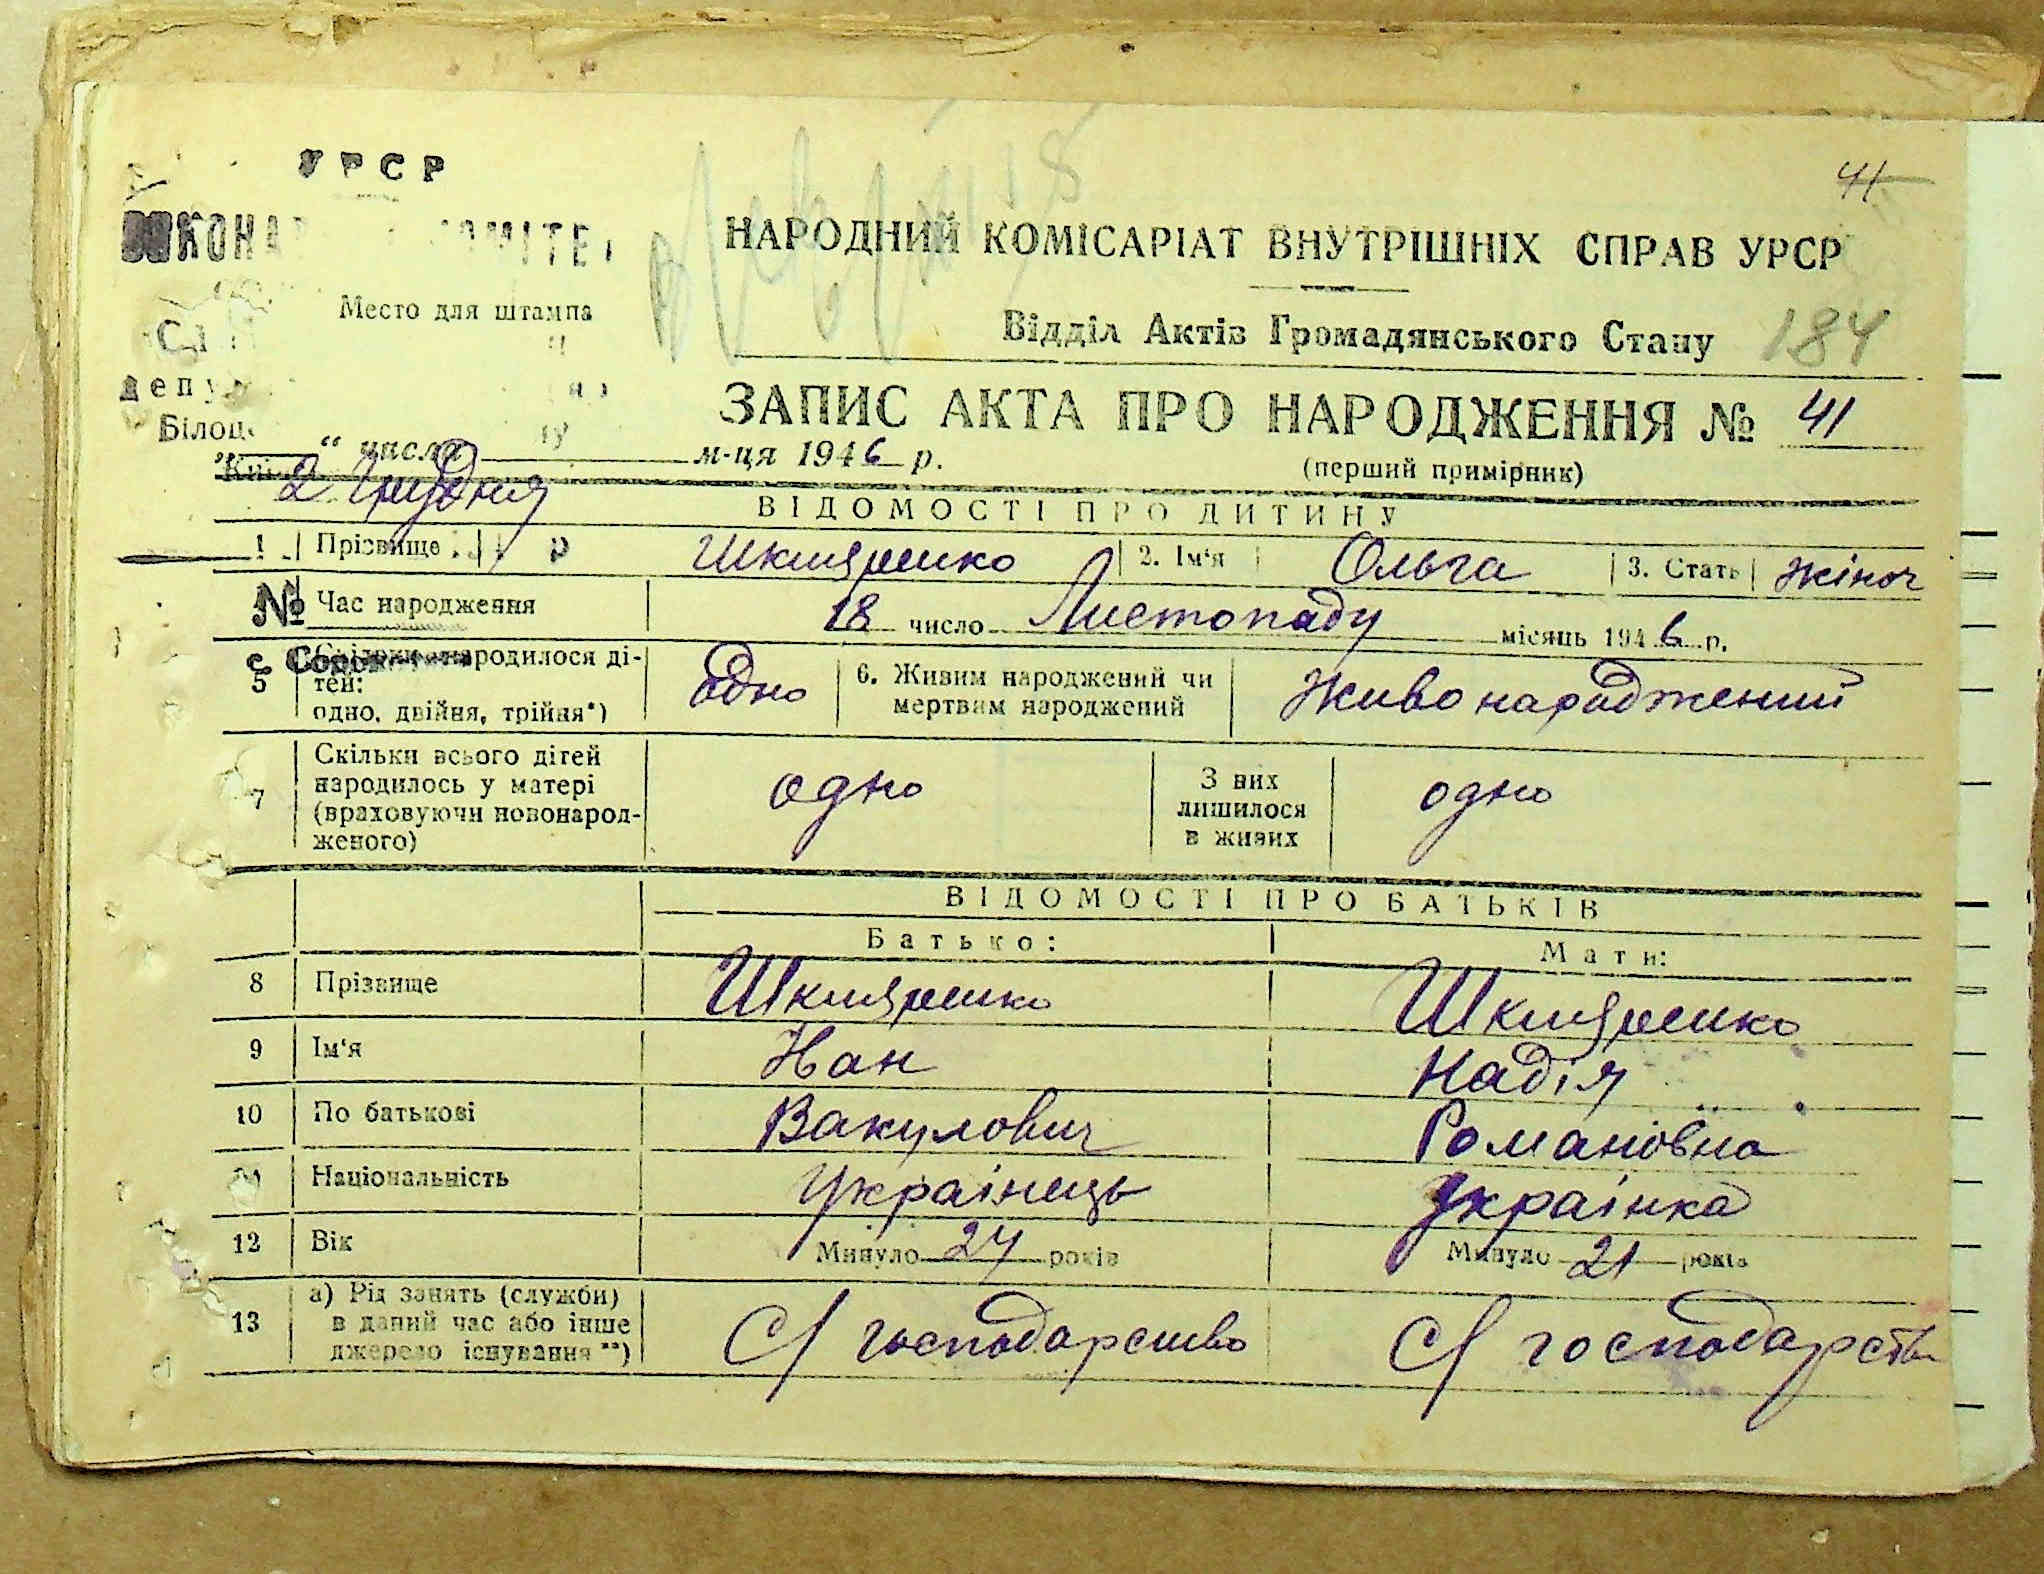 УРСР
41
НАРОДНИЙ КОМІСАРІАТ ВНУТРІШНІХ СПРАВ УРСР
Место для штампа
Відділ Актів Громадянського Стану 184
ЗАПИС АКТА ПРО НАРОДЖЕННЯ № 41
(перший примірник)
„ “ числа м-ця 1946 р.
2 Грудня
ВІДОМОСТІ ПРО ДИТИНУ
1 Прізвище 2. Ім'я Ольга 3. Стать жіноч
№ Час народження 18 число Листопаду місяць 1946 р.
5 народилося ді-
тей:
одно, двійня, трійня*) одно
6. Живим народжений чи
мертвим народжений Живо народжений
7 Скільки всього дітей
народилось у матері
(враховуючи новонарод-
женого) одно
З них
лишилося
в живих одно
ВІДОМОСТІ ПРО БАТЬКІВ
Батько: Мати:
8 Прізвище
9 Ім'я Іван Надія
10 По батькові Вакулович Романовна
Національність Українець Українка
12 Вік Минуло 24 років Минуло 21 років
13 а) Рід занять (служби)
в даний час або інше
джерело існування**) С/господарство С/господарств